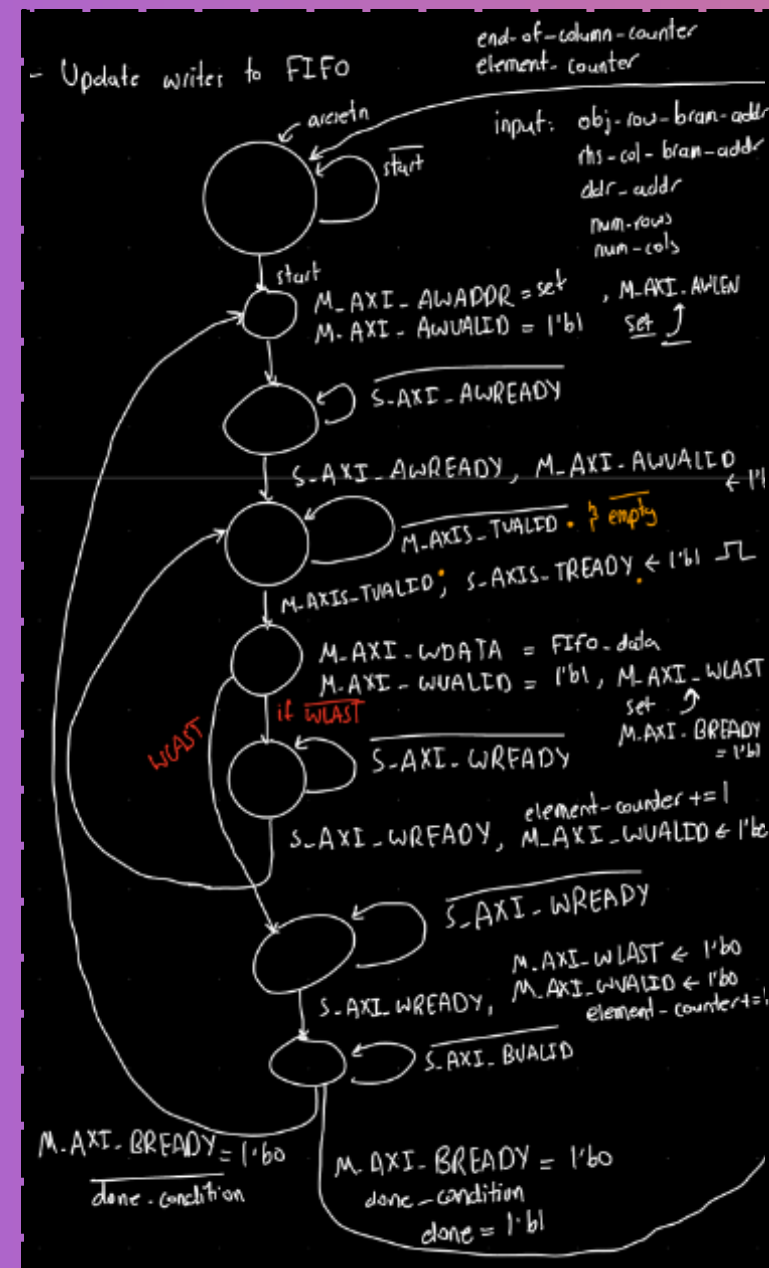 end-of-column-counter
- Update writes to FIFO
element-counter
aresetn
input: obj-row-bram-addr
start
rhs-col-bram-addr
ddr-addr
num-rows
num-cols
start
M_AXI_AWADDR = set , M_AXI_AWLEN
M_AXI_AWVALID = 1'b1 set
S_AXI_AWREADY
S_AXI_AWREADY, M_AXI_AWVALID
M_AXIS_TVALID . empty
M_AXIS_TVALID ; S_AXIS_TREADY ← 1'b1
M_AXI_WDATA = FIFO_data
M_AXI_WVALID = 1'b1, M_AXI_WLAST
if WLAST
set
WLAST
M_AXI_BREADY
= 1'b1
S_AXI_WREADY
element-counter += 1
S_AXI_WREADY, M_AXI_WVALID ← 1'b
S_AXI_WREADY
M_AXI_WLAST ← 1'b0
S_AXI_WREADY, M_AXI_WVALID ← 1'b0
element-counter +=
S_AXI_BVALID
M_AXI_BREADY = 1'b0
done-condition
M_AXI_BREADY = 1'b0
done-condition
done = 1'b1